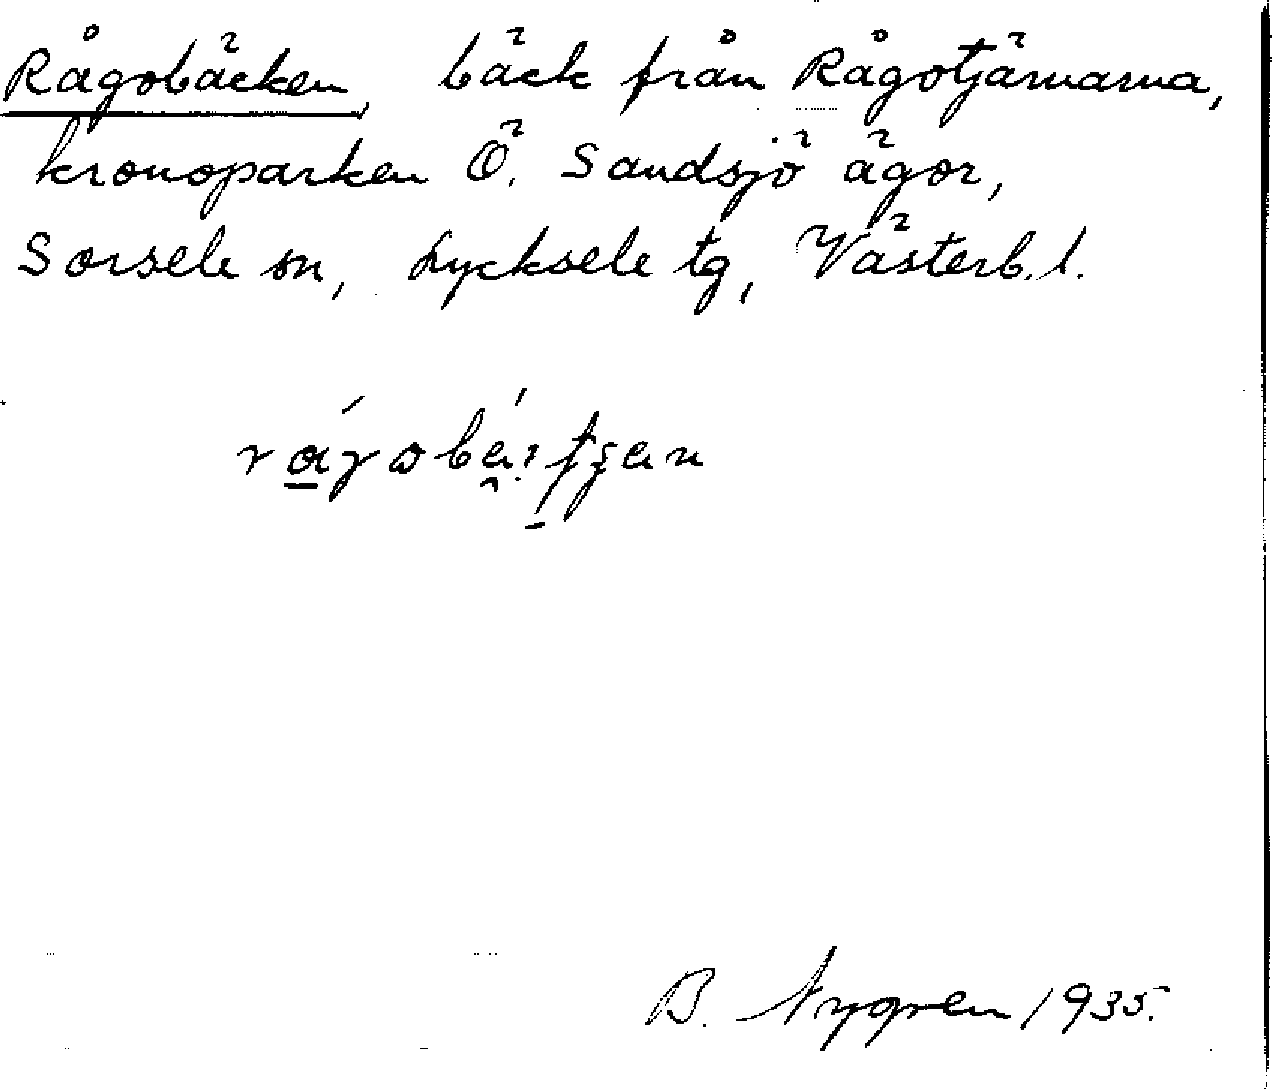 Rågobäcken, bäck från Rågotjärnarna,
kronoparken Ö. Sandsjö ägor,
Sorsele sn, Lycksele tg, Västerb. l.
B. Nygren 1935.